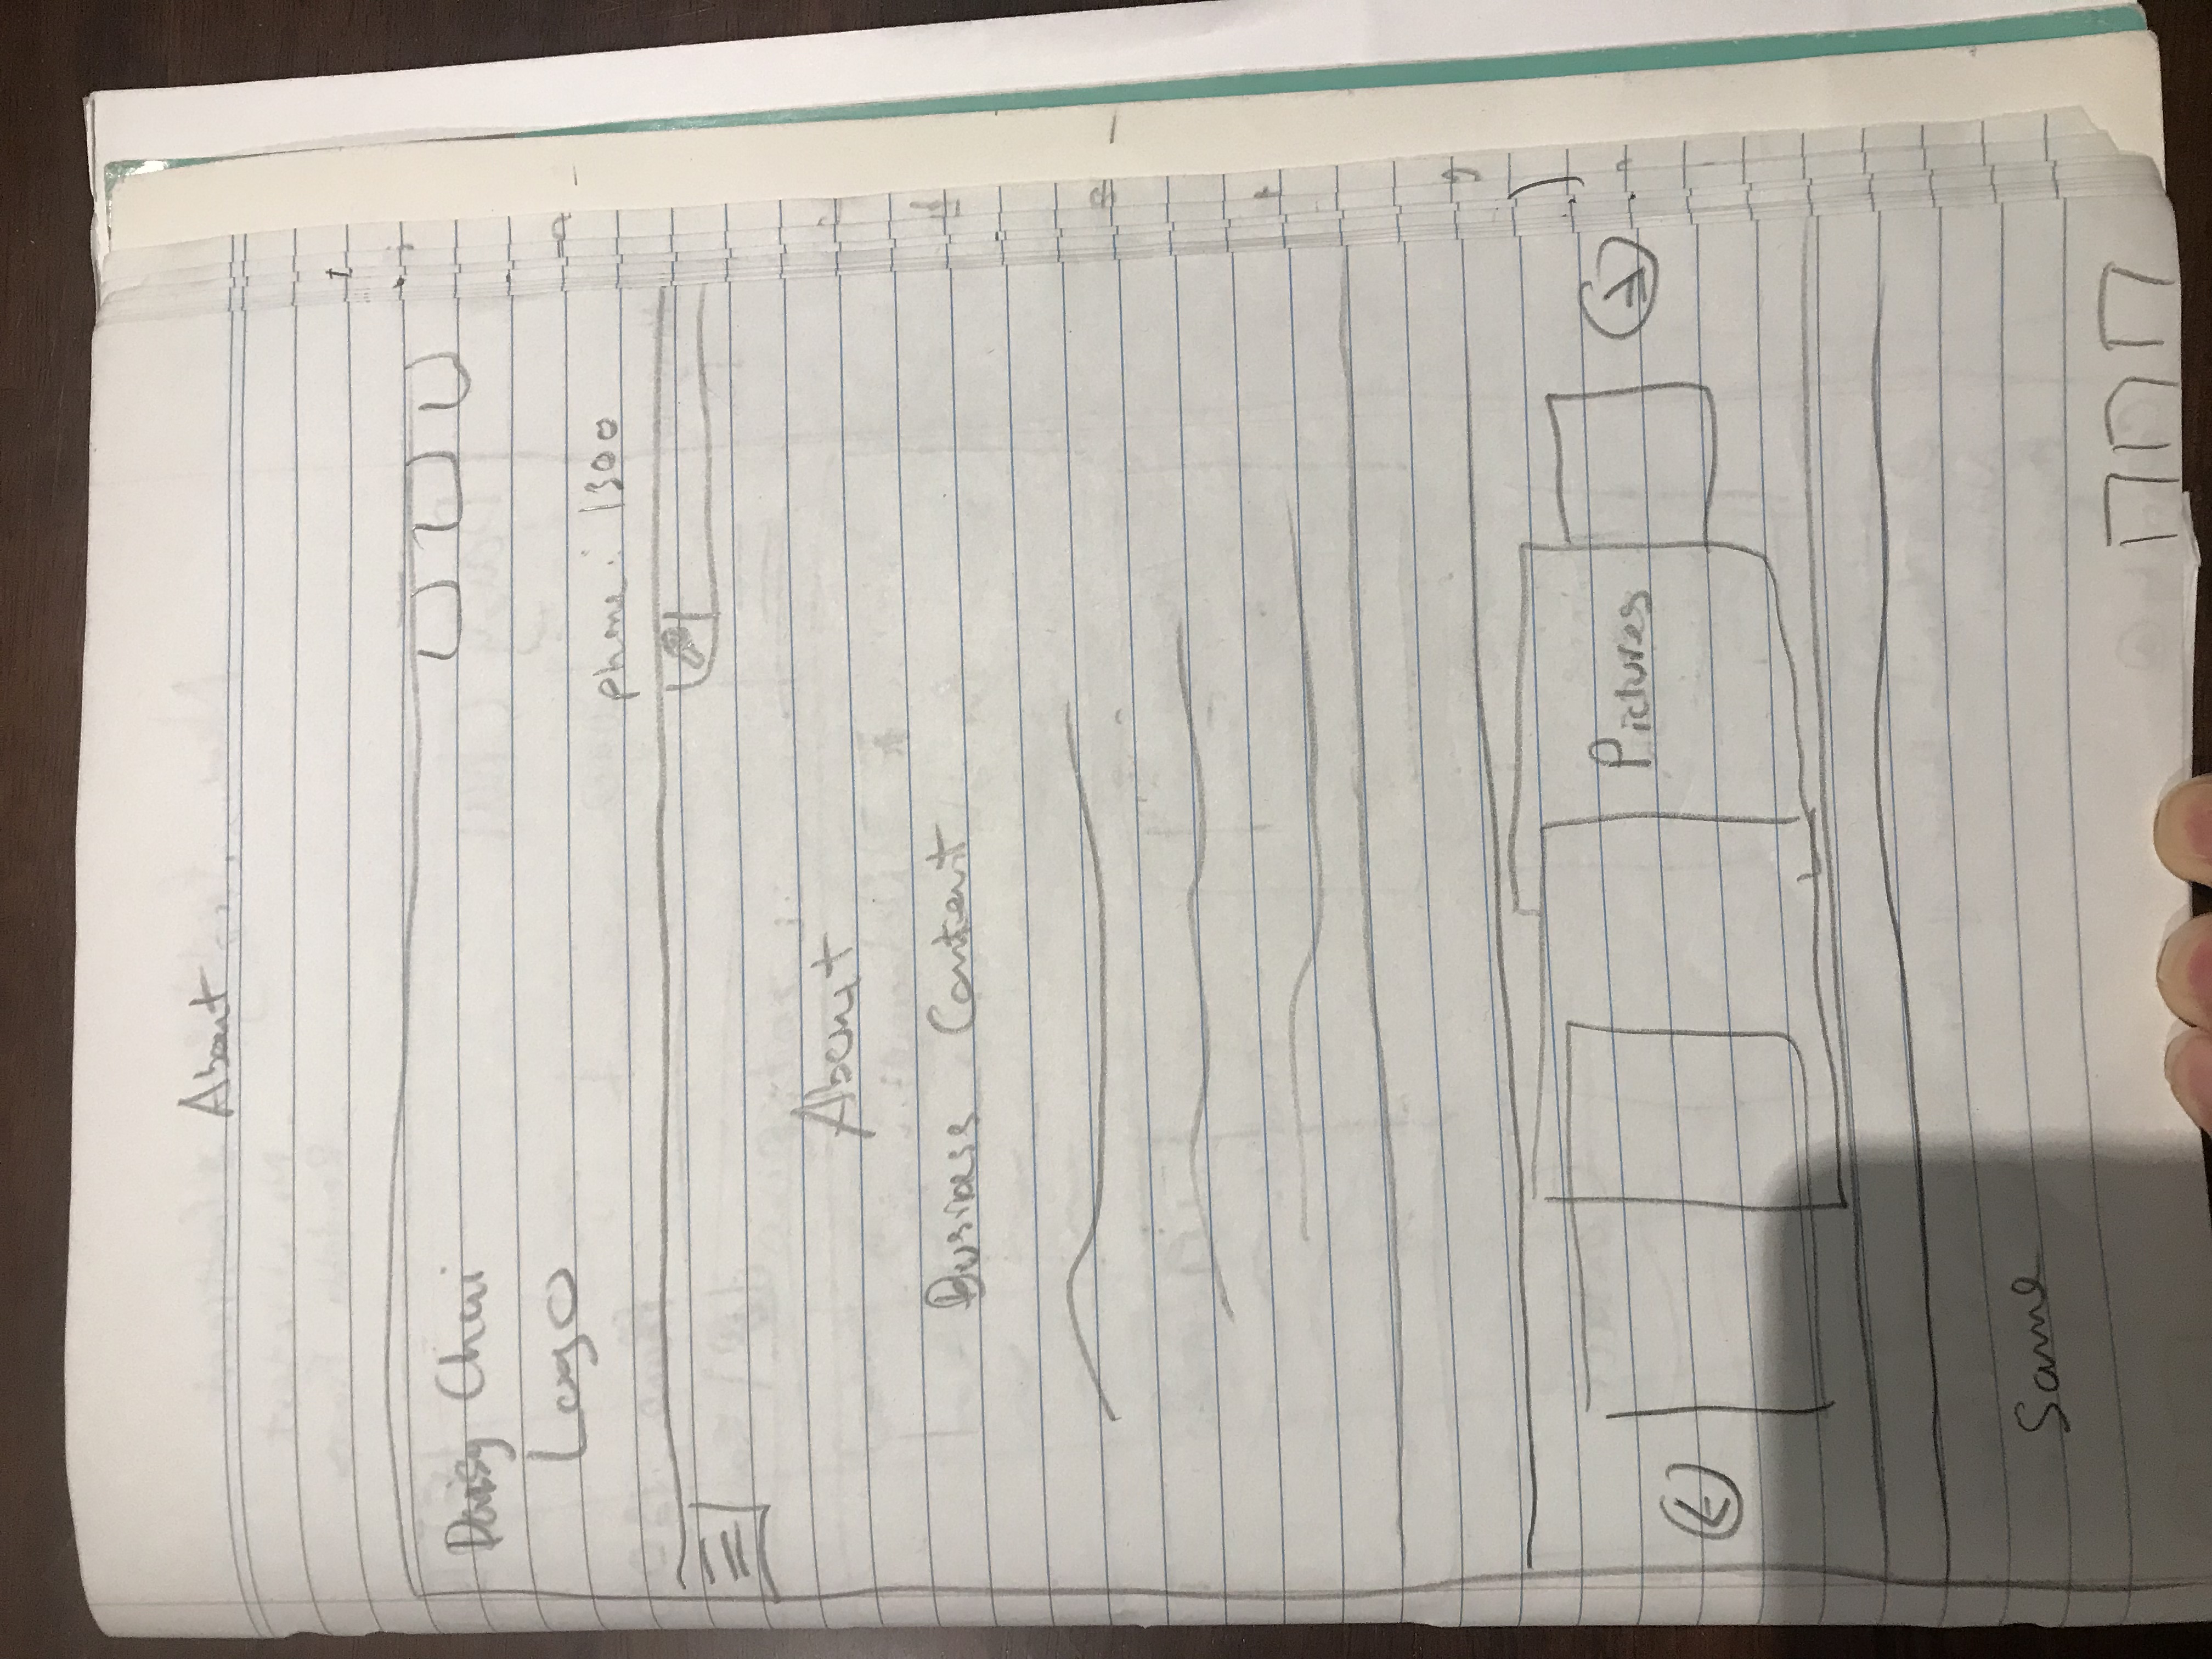 About
Daisy Chai
Logo
phone: 1300
About
Business Content
Pictures
Same